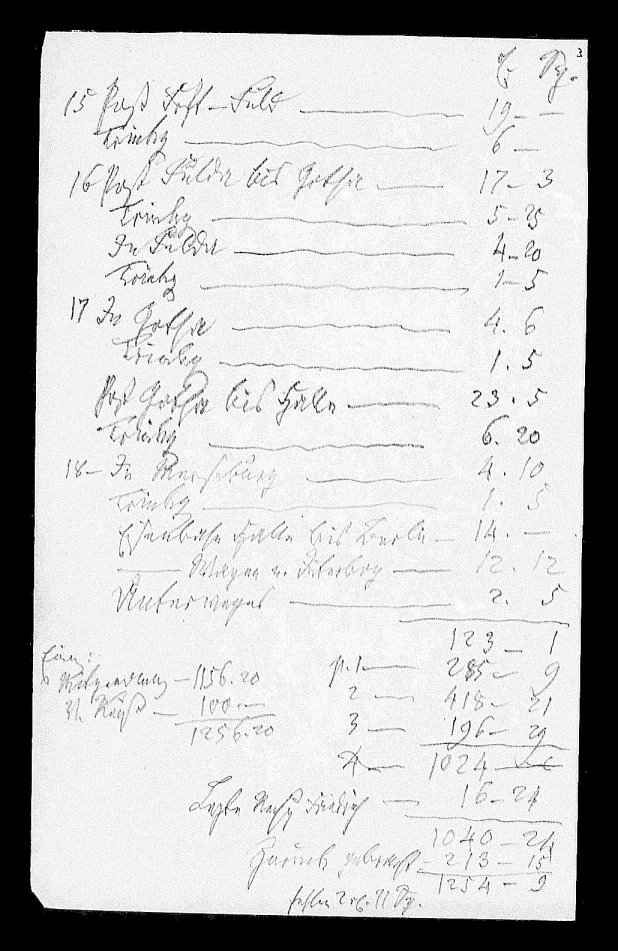 3
15 Post Fft – Fuld — 19 – –
Trinkg — 6 –
16 Post Fulda bis Gotha — 17 – 3
Trinkg — 5 – 25
In Fulda — 4 – 20
Trinkg — 1 – 5
17 In Gotha — 4. 6
Trinkg — 1. 5
Post Gotha bis Halle — 23. 5
Trinkg — 6. 20
18 – In Merseburg — 4. 10
Trinkg — 1. 5
Eisenbahn Halle bis Berlin — 14. –
— Wagen v. Jüterbog — 12. 12
Unterweges — 2. 5
123 – 1
p. 1 — 285 – 9
2 — 418 – 21
3 — 196 – 29
1024 –
Mitgenommen — 1156.20
100. –
1256.20
Letzte Friedrich — 16 – 24
1040 – 24
Zurück gebracht – 213 – 15
1254 – 9
fehlen 2 rt. 11 Sg.